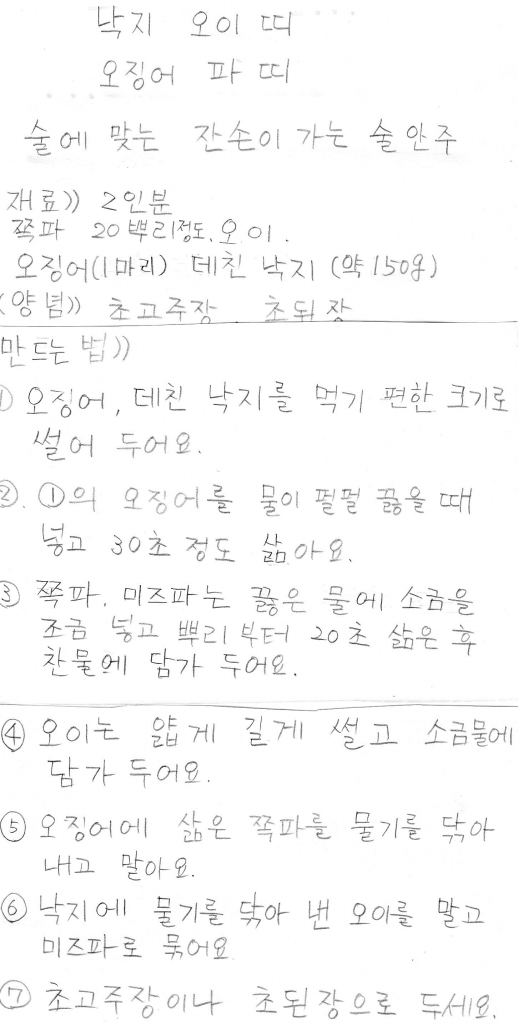 낙지 오이 띠
오징어 파 띠
술에 맞는 잔손이 가는 술안주
재료)) 2인분
쪽파 20뿌리정도. 오이.
오징어(1마리) 데친 낙지 (약 150g)
(양념)) 초고주장 초된장
만드는 법))
① 오징어, 데친 낙지를 먹기 편한 크기로
썰어 두어요.
②. ①의 오징어를 물이 펄펄 끓을 때
넣고 30초 정도 삶아요.
③ 쪽파. 미즈파는 끓은 물에 소금을
조금 넣고 뿌리부터 20초 삶은 후
찬물에 담가 두어요.
④ 오이는 얇게 길게 썰고 소금물에
담가 두어요.
⑤ 오징어에 삶은 쪽파를 물기를 닦아
내고 말아요.
⑥ 낙지에 물기를 닦아 낸 오이를 말고
미즈파로 묶어요
⑦ 초고주장이나 초된장으로 두세요.